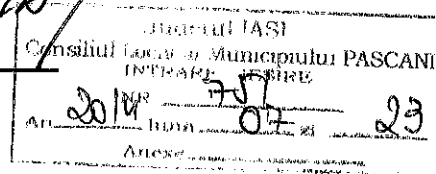 Judetul IASI
Consiliul Local al Municipiului PASCANI
INTRARE IESIRE
NR
An 2014 luna 07 zi 23
Anexe